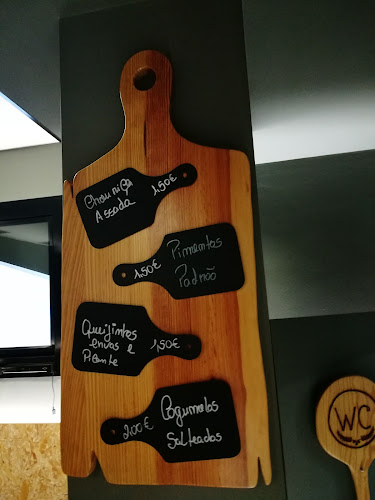 Chouriça
Assada
1.50€
Pimentos
Padrão
1.50€
Queijinhos
ervas e
Picante
1,50€
Cogumelos
Salteados
2.00€
WC